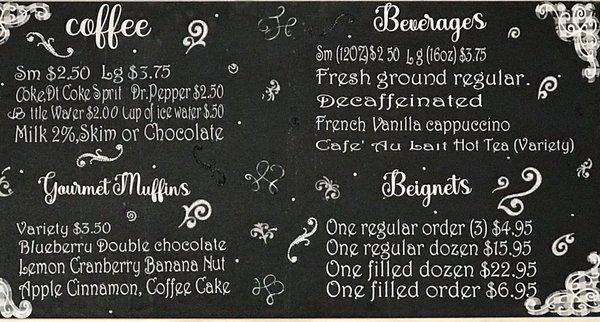 coffee
Sm $2.50 Lg $3.75
Coke,Dt Coke Sprit Dr.Pepper $2.50
ttle Water $2.00 Cup of ice water $.50
Milk 2%,Skim or Chocolate
Gourmet Muffins
Variety $3.50
Blueberry Double chocolate
Lemon Cranberry Banana Nut
Apple Cinnamon, Coffee Cake
Beverages
Sm (12OZ)$2 50 Lg (16oz) $3.75
Fresh ground regular.
Decaffeinated
French Vanilla cappuccino
Cafe' Au Lait Hot Tea (Variety)
Beignets
One regular order (3) $4.95
One regular dozen $15.95
One filled dozen $22.95
One filled order $6.95